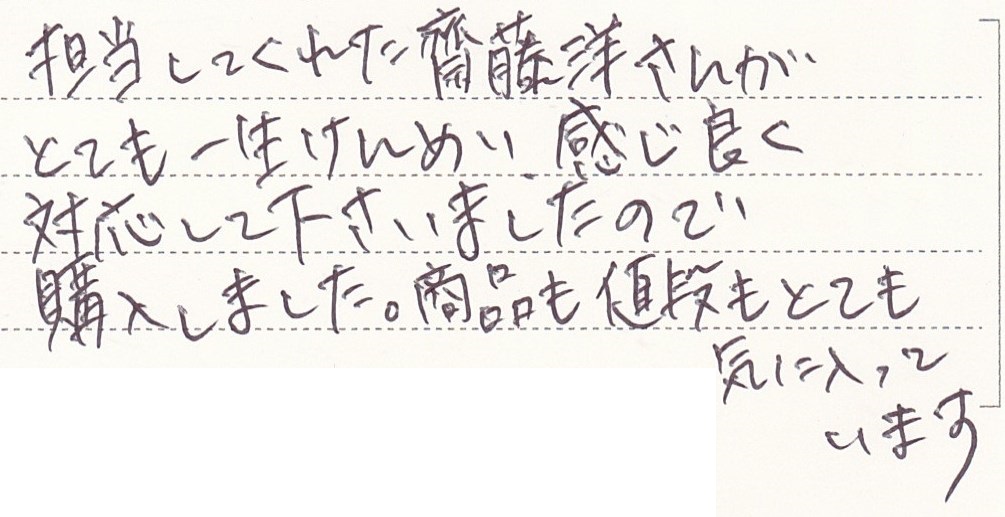 担当してくれた齋藤洋さんが
とても一生けんめい、感じ良く
対応して下さいましたので
購入しました。商品も値段もとても
気に入って
います